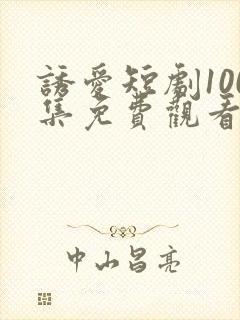 誘愛短劇100
集免費觀看
中山昌亮